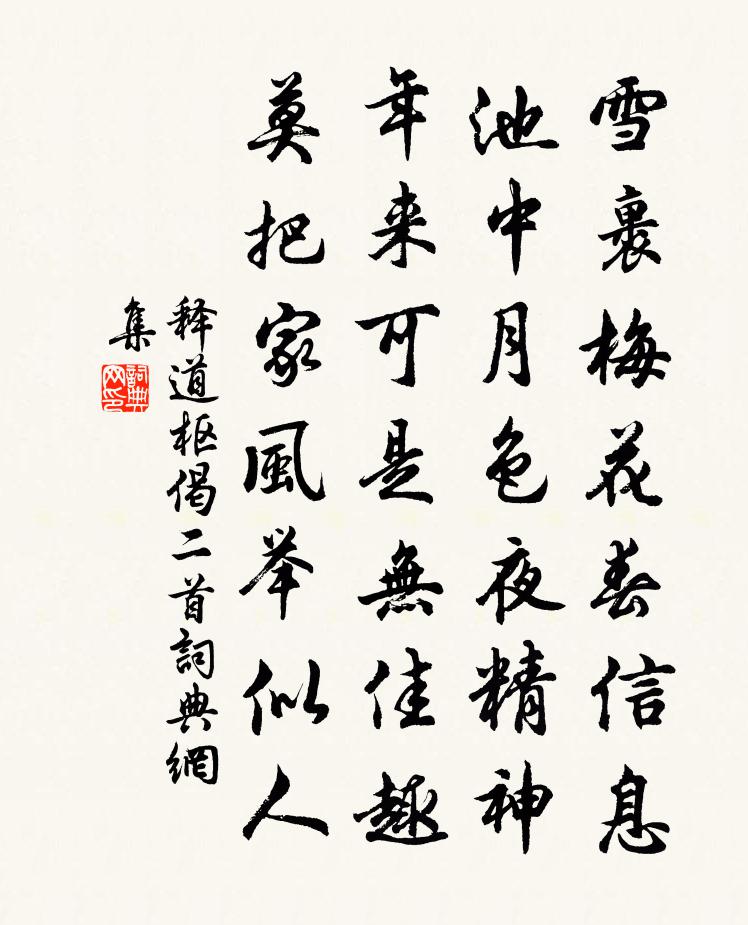 雪裏梅花春信息
池中月色夜精神
年来可是無佳趣
莫把家風举似人
释道枢偈二首詞典網
集
詞典
网印